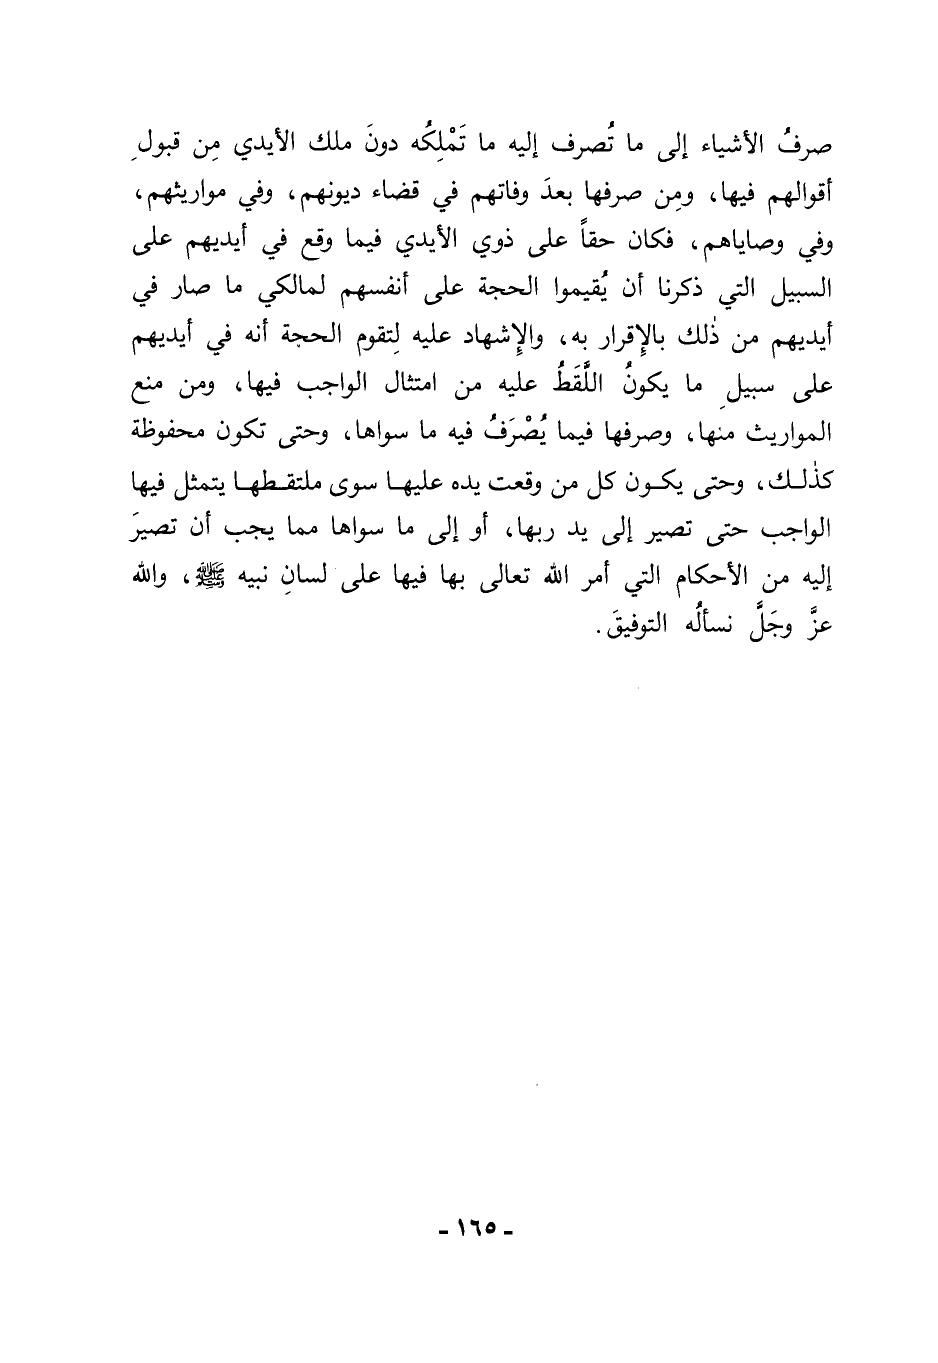 صرفُ الأشياء إلى ما تُصرف إليه ما تَمْلِكُه دونَ ملك الأيدي مِن قبولِ
أقوالهم فيها، ومِن صرفها بعدَ وفاتهم في قضاء ديونهم، وفي مواريثهم،
وفي وصاياهم، فكان حقاً على ذوي الأيدي فيما وقع في أيديهم على
السبيل التي ذكرنا أن يُقيموا الحجة على أنفسهم لمالكي ما صار في
أيديهم من ذٰلك بالإِقرار به، والإِشهاد عليه لِتقوم الحجة أنه في أيديهم
على سبيلِ ما يكونُ اللَّقَطُ عليه من امتثال الواجب فيها، ومن منع
المواريث منها، وصرفها فيما يُصْرَفُ فيه ما سواها، وحتى تكون محفوظة
كذٰلك، وحتى يكون كل من وقعت يده عليها سوى ملتقطها يتمثل فيها
الواجب حتى تصير إلى يد ربها، أو إلى ما سواها مما يجب أن تصيرَ
إليه من الأحكام التي أمر الله تعالى بها فيها على لسانِ نبيه ﷺ، والله
عزَّ وجَلَّ نسألُه التوفيقَ.
- ١٦٥ -